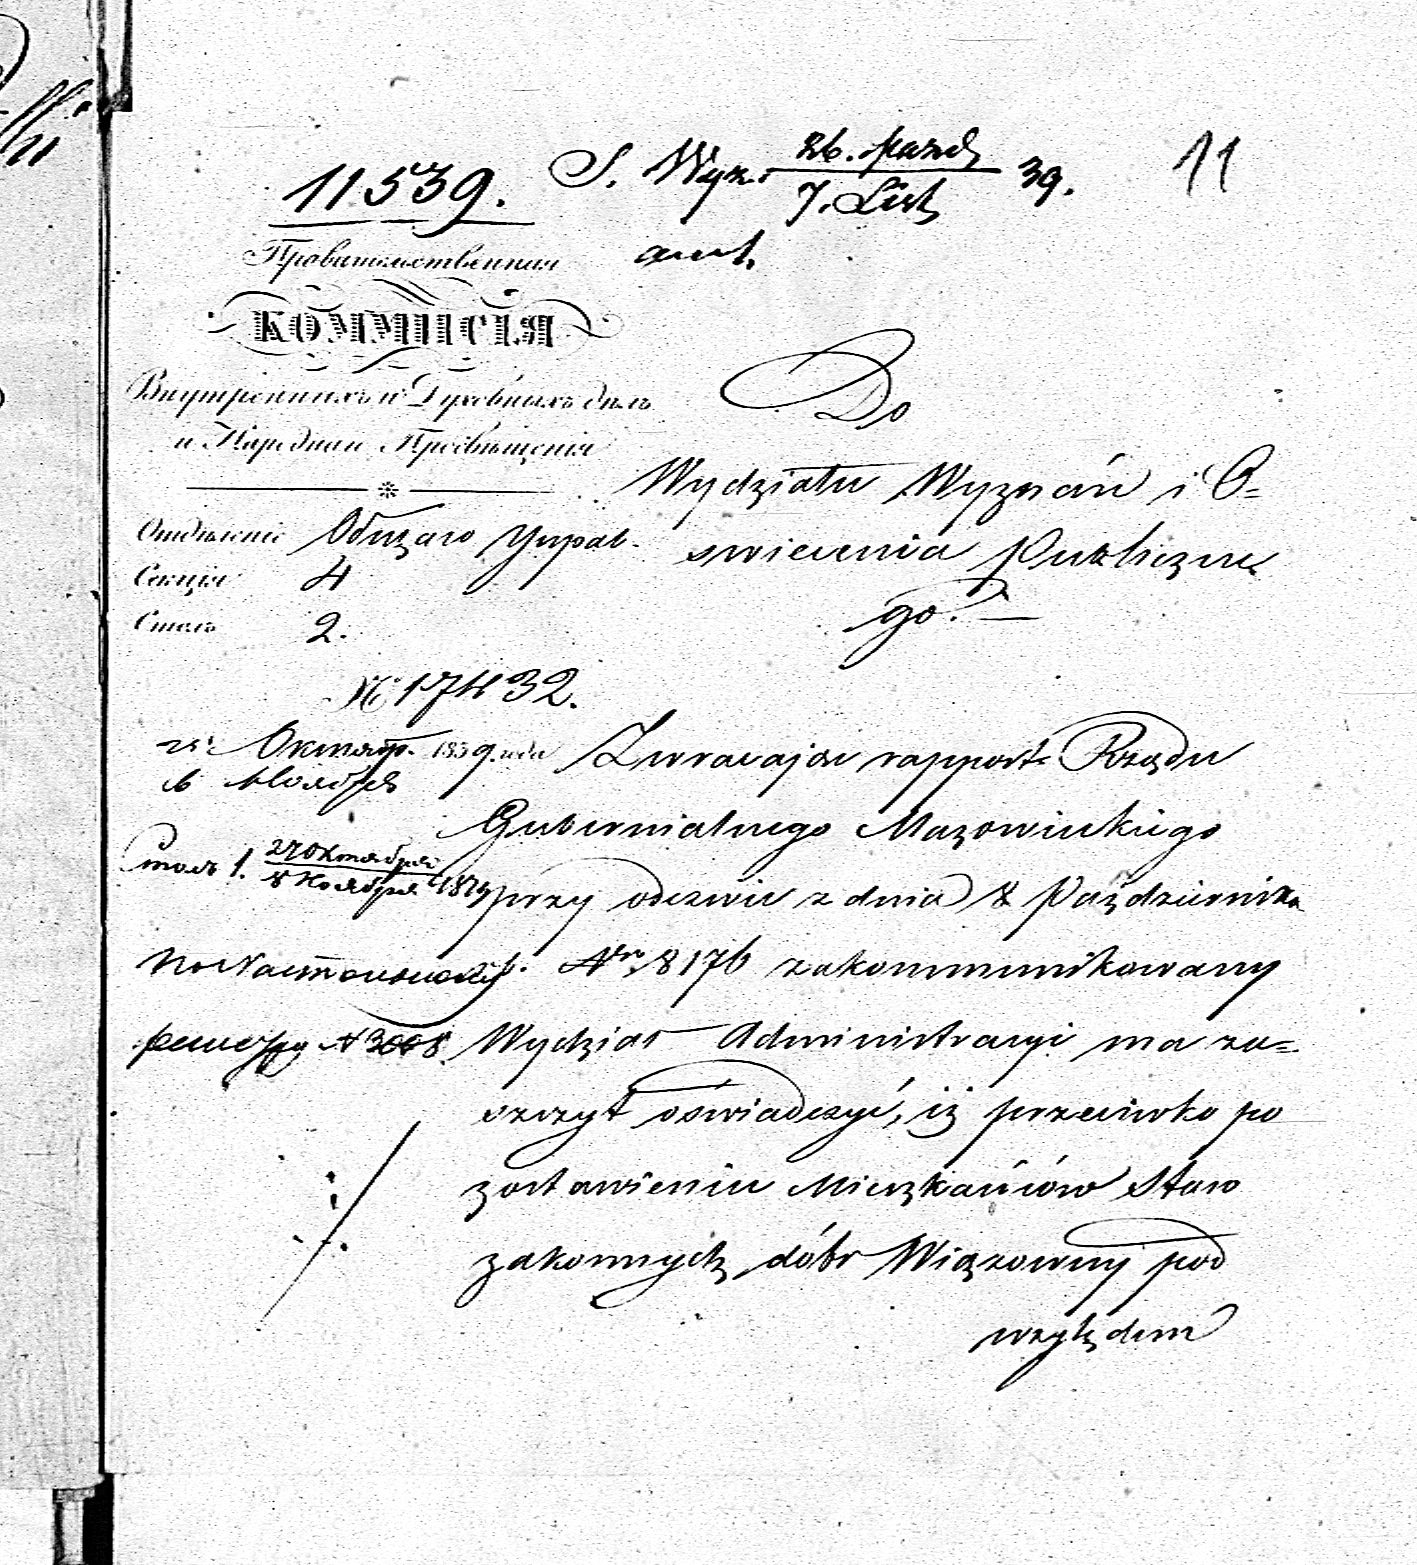 11539. S. Wyz. 26. Pazd. / 7. List. 39. 11
Правительственная
КОММИСІЯ
Внутреннихъ и Духовныхъ дѣлъ
и Народнаго Просвѣщенія
Отдѣленіе Общаго Управ.
Секція 4
Столъ 2.
№ 17432.
Октяб. 1839 года
6 Ноября
Столъ 1. 27 Октября / 8 Ноября 1839
№ 3008
Do
Wydziału Wyznań i O=
swiecenia Publiczne
go. —
Zwracaiąc rapport Rządu
Gubernialnego Mazowieckiego
przy odezwie z dnia 8 Października
Nr. 8176 zakommunikowany
Wydział Administracyi ma za=
szczyt oświadczyć, iż przeciwko po
zostawieniu Mieszkańców Staro
zakonnych dóbr Wiązowny pod
względem